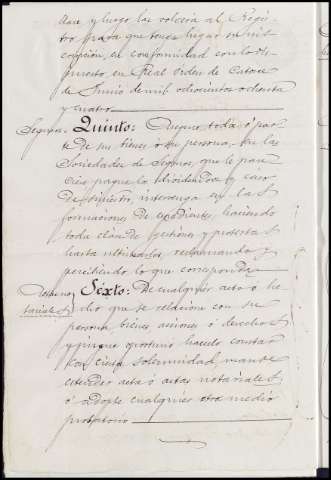 dax y luego las volverá al Regis-
tro para que tenga lugar su ins-
cripción, en conformidad con lo dis-
puesto en Real orden de Catorce
de Junio de mil ochocientos ochenta
y cuatro
Seguros. Quinto: Asegure toda ó par-
te de sus bienes ó su persona, en las
Sociedades de Seguros, que le pare
cier pague los dividendos y caso
de siniestro, intervenga en las
formaciones de expediente, haciendo
toda clase de gestiones y protestas
hasta ultimarlos, reclamando y
percibiendo lo que corresponda
Actas no- Sexto: De cualquier acto ó he-
tariales cho que se relacione con su
persona, bienes, acciones ó derechos
y crea oportuno hacerlo constar
con cierta solemnidad, mande
extender acta ó actas notariales
ó adopte cualquier otro medio
probatorio